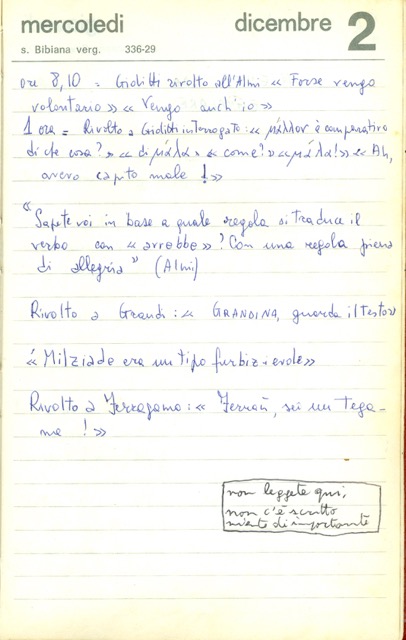 mercoledì
dicembre 2
s. Bibiana verg. 336-29
ore 8,10 = Giditti rivolto all'Almi « Forse vengo
volontario » « Vengo anch'io »
1 ora = Rivolto a Giditti interrogato: « μάλλον è comparativo
di che cosa? » « di μάλα » « come? » « μάλα! » « Ah,
avevo capito male ! »
"Sapete voi in base a quale regola si traduce il
verbo con « avrebbe » ? Con una regola piena
di allegria" (Almi)
Rivolto a Grandi : « GRANDINA, guarda il testo »
« Milziade era un tipo furbiz-evole »
Rivolto a Ferragamo: « Ferrari, sei un tega-
me ! »
non leggete qui,
non c'è scritto
niente di importante